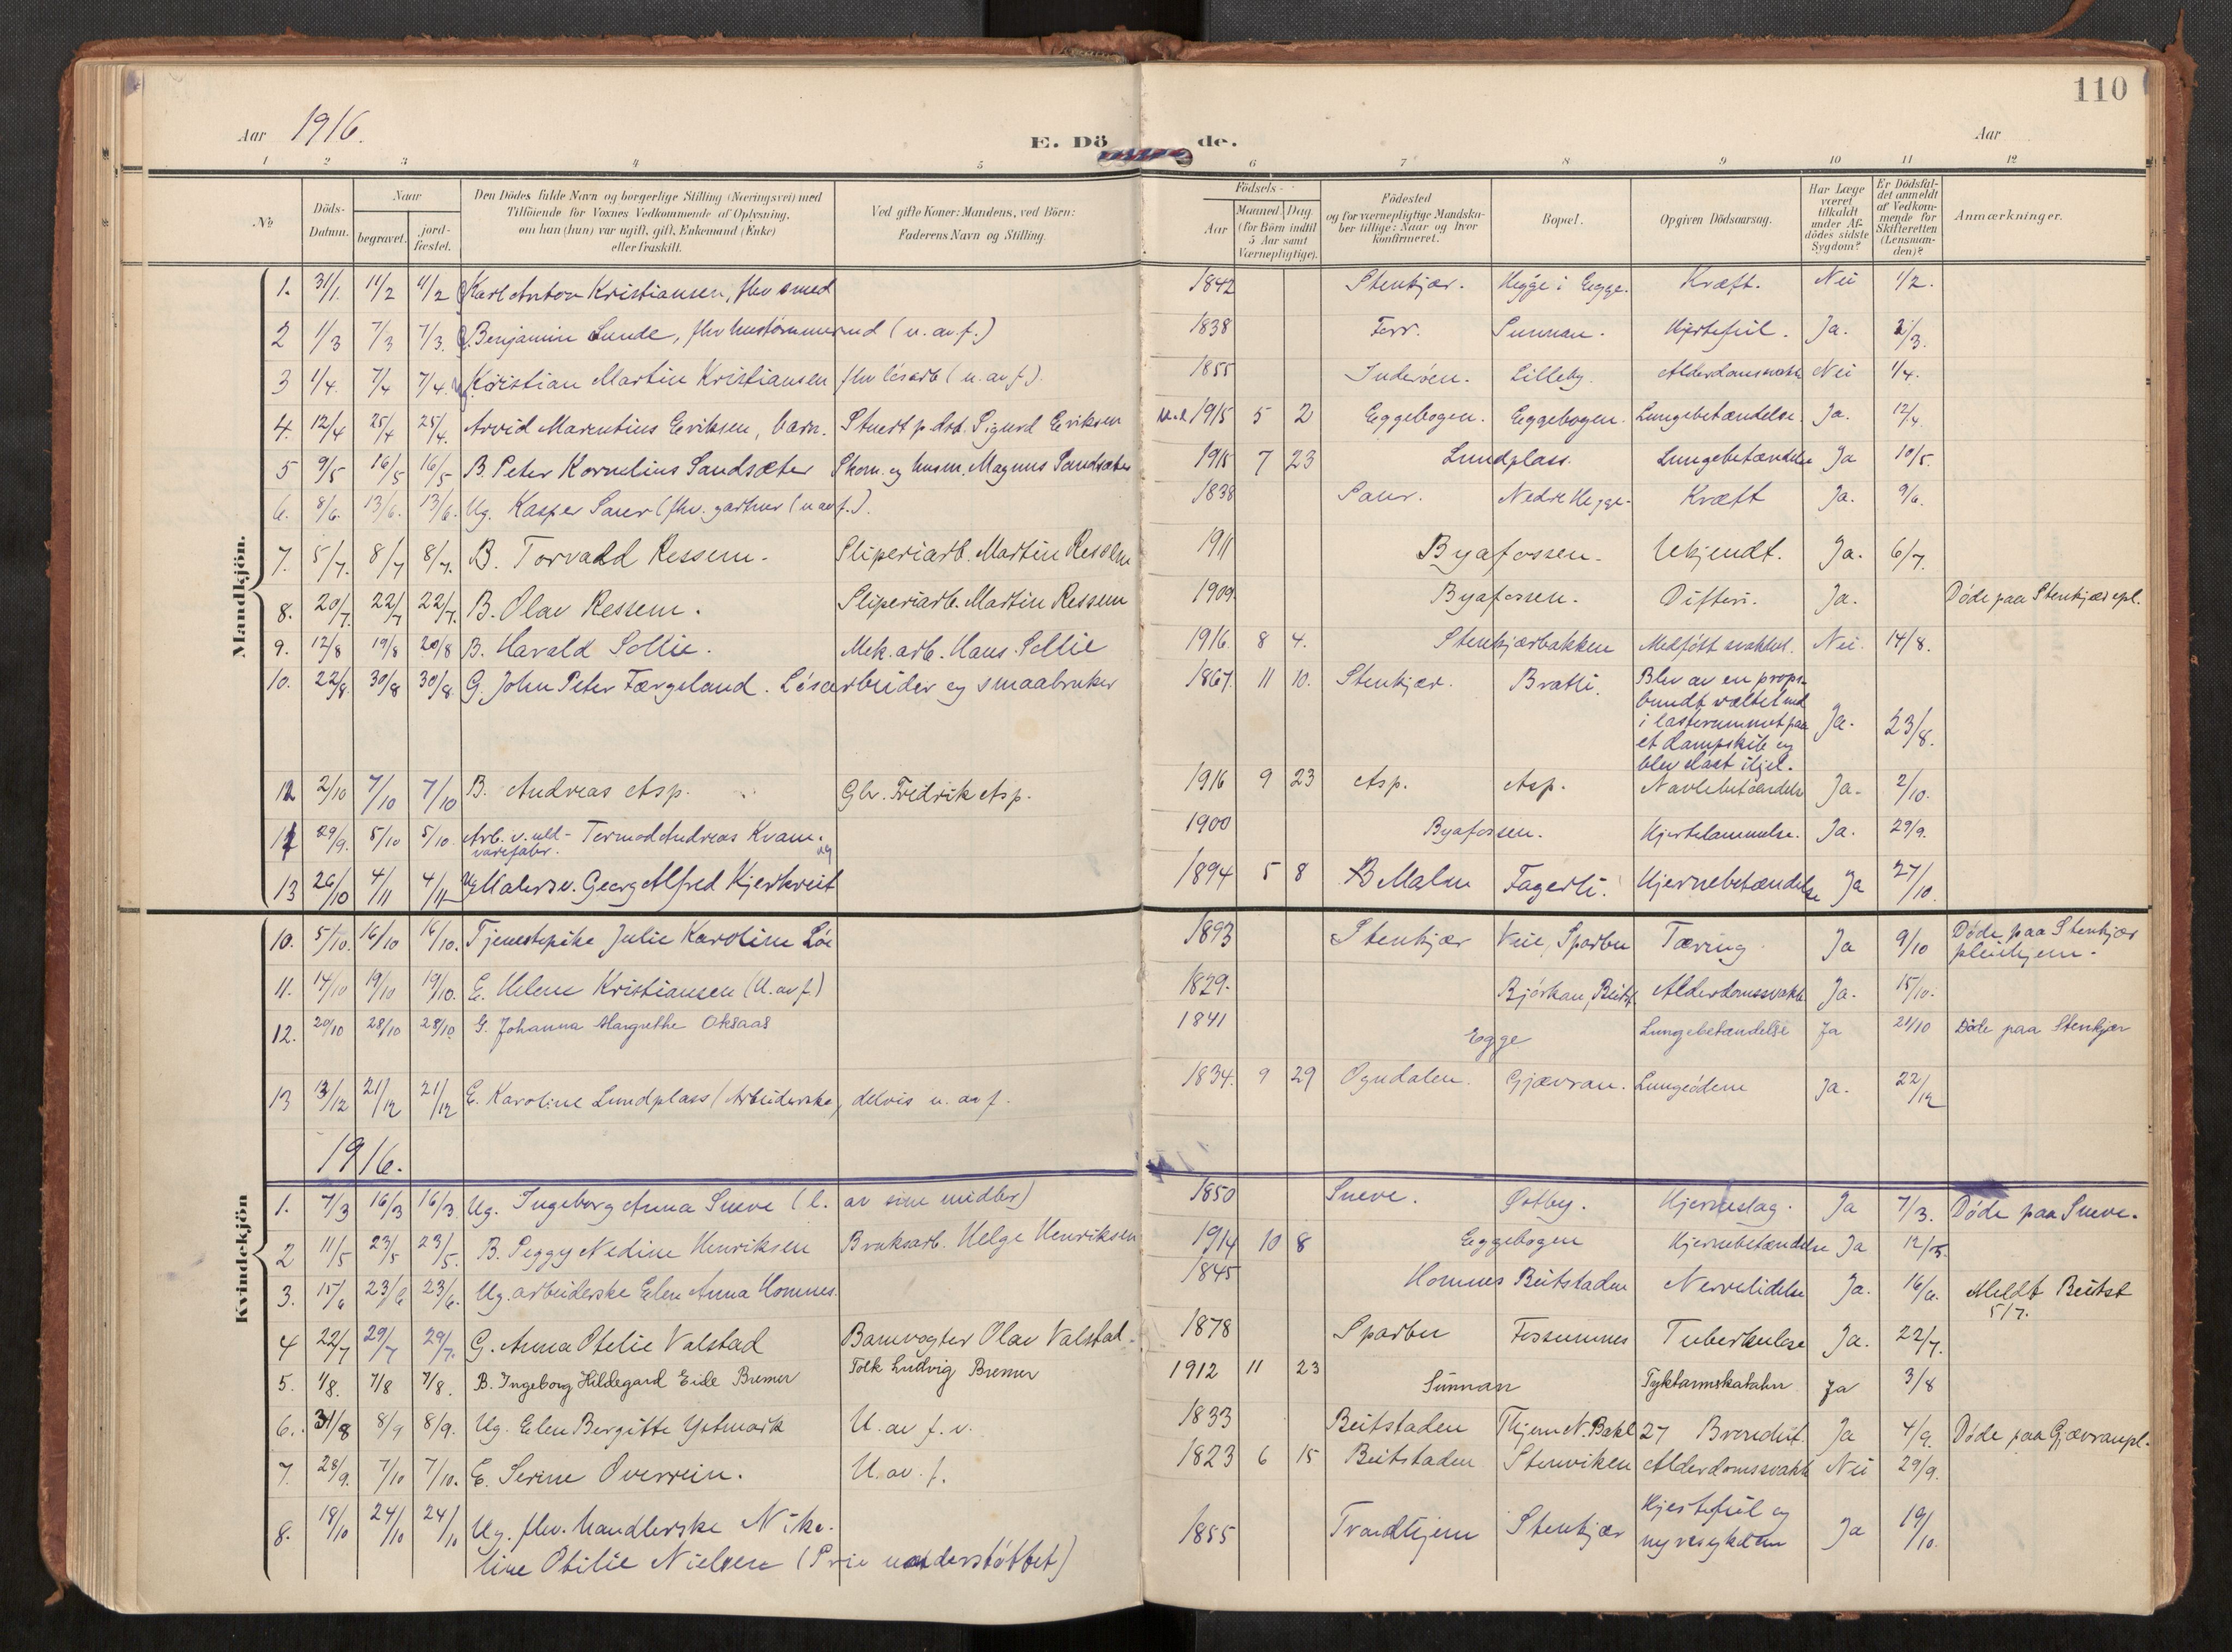 110
Aar 1916.
E. Dö de.
Aar
1 2 3 4 5 6 7 8 9 10 11 12
No
Döds-Datum.
Naar
begravet.
jord-fæstet.
Den Dödes fulde Navn og borgerlige Stilling (Næringsvei) med
Tilföiende for Voxnes Vedkommende af Oplysning,
om han (hun) var ugift, gift, Enkemand (Enke)
eller fraskilt.
Ved gifte Koner: Mandens, ved Börn:
Faderens Navn og Stilling.
Födsels-
Aar
Maaned. Dag.
(for Börn indtil
5 Aar samt
Værnepligtige).
Födested
og for værnepligtige Mandska-
ber tillige: Naar og hvor
konfirmeret.
Bopæl.
Opgiven Dödsaarsag.
Har Læge
været
tilkaldt
under Af-
dödes sidste
Sygdom?
Er Dödsfal-
det anmeldt
af Vedkom-
mende for
Skifteretten
(Lensman-
den)?
Anmærkninger.
Mandkjön.
1. 31/1. 11/2 11/2 Karl Anton Kristiansen, fhv smed 1842 Stenkjær. Hegge i Egge. Kræft. Nei 1/2.
2 1/3 7/3 7/3. Benjamin Lunde, fhv hustømmermd (u. av f.) 1838 Sunnan. Hjertefeil. Ja. 2/3.
3 1/4. 7/4 7/4. Kristian Martin Kristiansen fhv løsarb (u. av f.). 1855 Inderøen. Lilleby. Alderdomssvakh Nei 1/4.
4. 12/4 25/4 25/4. Arvid Marentius Eriksen, barn. Stuert p. dsk. Sigurd Eriksen 1915 5 2 Eggebogen. Eggebogen. Lungebetændelse. Ja. 12/4
5 9/5 16/5 16/5 B. Peter Kornelius Sandsæter Skom. og husm. Magnus Sandsæter 1915 7 23 Lundplass. Lungebetændelse Ja 10/5.
6. 8/6. 13/6. 13/6. Ug. Kasper Saur (fhv. gartner (u av f.). 1838 Saur. Nedre Hegge. Kræft Ja. 9/6.
7. 5/7. 8/7 8/7. B. Torvald Ressem. Sliperiarb. Martin Ressem 1911 Byafossen. Ukjendt. Ja. 6/7.
8. 20/7. 22/7 22/7. B. Olav Ressem. Sliperiarb. Martin Ressem 1909 Byafossen. Difteri. Ja. Døde paa Stenkjær epl.
9. 12/8 19/8 20/8 B. Harald Sollie. Mek. arb. Hans Sollie 1916 8 4. Stenkjærbakken Medfødt svakhet. Nei. 14/8.
10. 22/8. 30/8 30/8. G. John Peter Færgeland. Løsarbeider og smaabruker 1867. 11 10. Stenkjær. Bratli. Blev av en props-
bundt væltet ned
i lasterummet paa
et dampskib og
blev slaat ihjel. Ja. 23/8.
12 2/10 7/10 7/10 B. Andreas Asp. Gbr. Fredrik Asp. 1916 9 23 Asp. Asp. Navlebetændelse Ja. 2/10.
11 29/9. 5/10 5/10. Arb. v. uld-
varefabr. Tormod Andreas Kvam. 1900 Byafossen. Hjertelammelse. Ja. 29/9.
13 26/10 4/11 4/11 Ug Malersv. Georg Alfred Kjerkreit 1894 5 8 Malm Fagerli. Hjernebetændelse Ja 27/10.
10. 5/10. 16/10 16/10. Tjenestepike Julie Karoline Løe 1893 Stenkjær Veie, Sparbu Tæring. Ja 9/10 Døde paa Stenkjær
pleiehjem.
11. 14/10 19/10 19/10. E. Helene Kristiansen (U. av f.) 1829. Bjørkan, Beitst. Alderdomssvakh Ja. 15/10.
12. 20/10 28/10 28/10. G. Johanna Margrethe Oksaas 1841 Egge Lungebetændelse Ja 21/10 Døde paa Stenkjær
13 13/12 21/12 21/12 E. Karoline Lundplass (Arbeiderske, delvis u. av f. 1834. 9 29 Ogndalen. Gjævran. Lungeødem Ja. 22/12
1916.
Kvindekjön
1. 7/3 16/3 16/3 Ug. Ingeborg Anna Sneve (l. av sine midler) 1850 Sneve. Østby. Hjerneslag. Ja 7/3. Døde paa Sneve.
2 11/5 23/5 23/5. B. Peggy Nedine Henriksen Bruksarb. Helge Henriksen 1914 10 8 Eggebogen Hjernebetændelse Ja 12/5.
3. 15/6 23/6 23/6. Ug. arbeiderske Elen Anna Homnes. 1845 Homnes Beitstaden Nervelidelse Ja. 16/6. Meldt Beitst
5/7.
4 22/7 29/7 29/7. G. Anna Otelie Valstad Banevogter Olav Valstad. 1878 Sparbu Fossumnes Tuberkulose Ja. 22/7.
5. 1/8. 7/8 7/8. B. Ingeborg Hildegard Eide Bremer Tolk Ludvig Bremer 1912 11 23 Sunnan Tyktarmskatahr Ja 3/8
6. 31/8 8/9 8/9. Ug. Elen Bergitte Ystmark U. av f. v. 1833 Beitstaden Ja 4/9. Døde paa Gjævranpl.
7. 28/9. 7/10 7/10. E. Serine Overrein. U. av. f. 1823 6 15 Beitstaden Stenviken Alderdomssvakh Nei 29/9.
8. 18/10 24/10 24/10 Ug. fhv. handlerske Niko-
line Otilie Nielsen (Priv understøttet) 1855 Trondhjem Stenkjær Hjertefeil og
nyresykdom Ja 19/10.